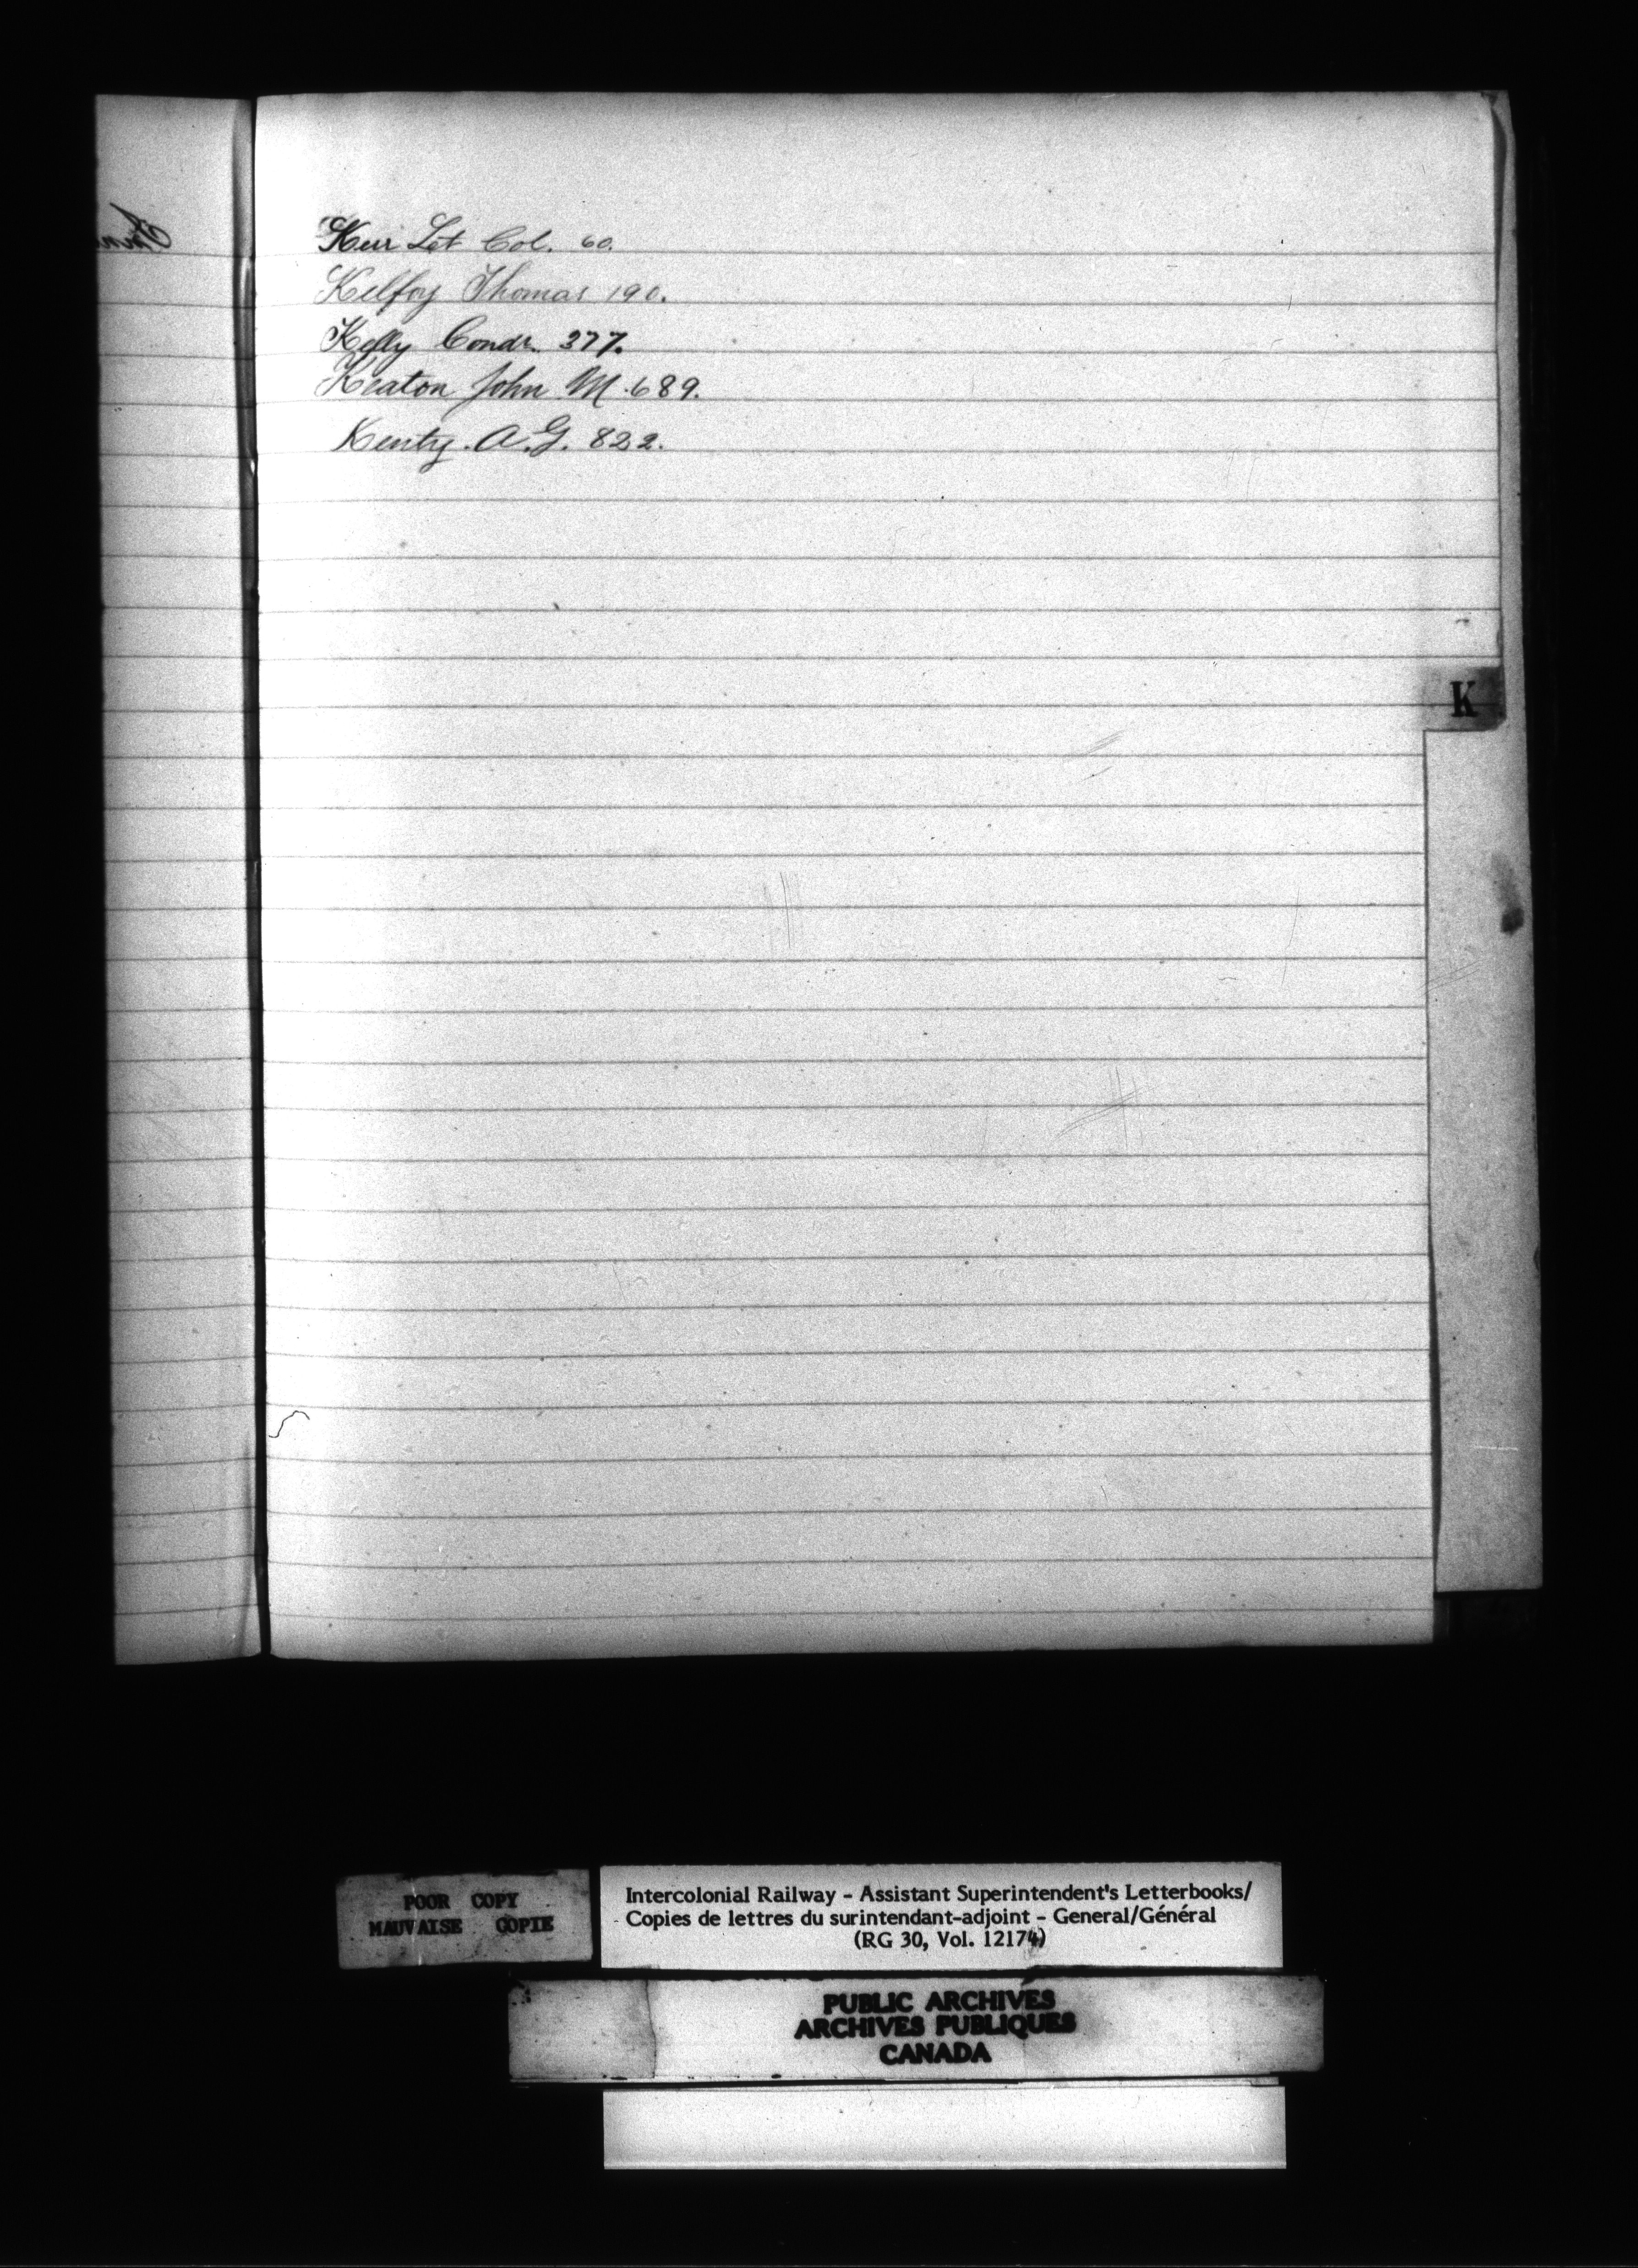 Keir Let Col. 60.
Kelfoy Thomas 190.
Kelly Condr. 377.
Keaton John M. 689.
Kenty. A. G. 822.
K
POOR COPY
MAUVAISE COPIE
Intercolonial Railway - Assistant Superintendent's Letterbooks/
Copies de lettres du surintendant-adjoint - General/Général
(RG 30, Vol. 12174)
PUBLIC ARCHIVES
ARCHIVES PUBLIQUES
CANADA